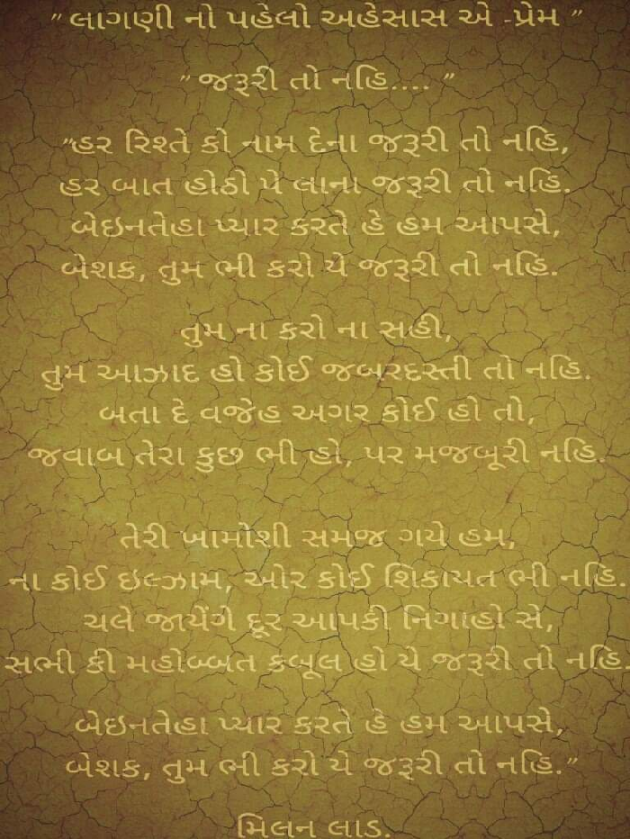 " લાગણી નો પહેલો અહેસાસ એ -પ્રેમ "
" જરૂરી તો નહિ.... "
"હર રિશ્તે કો નામ દેના જરૂરી તો નહિ,
હર બાત હોઠો પે લાના જરૂરી તો નહિ.
બેઇનતેહા પ્યાર કરતે હે હમ આપસે,
બેશક, તુમ ભી કરો યે જરૂરી તો નહિ.
તુમ ના કરો ના સહી,
તુમ આઝાદ હો કોઈ જબરદસ્તી તો નહિ.
બતા દે વજેહ અગર કોઈ હો તો,
જવાબ તેરા કુછ ભી હો, પર મજબૂરી નહિ.
તેરી ખામોશી સમજ ગયે હમ,
ના કોઈ ઇલ્ઝામ, ઓર કોઈ શિકાયત ભી નહિ.
ચલે જાયેંગે દૂર આપકી નિગાહો સે,
સભી કી મહોબ્બત કબૂલ હો યે જરૂરી તો નહિ.
બેઇનતેહા પ્યાર કરતે હે હમ આપસે,
બેશક, તુમ ભી કરો યે જરૂરી તો નહિ."
મિલન લાડ.